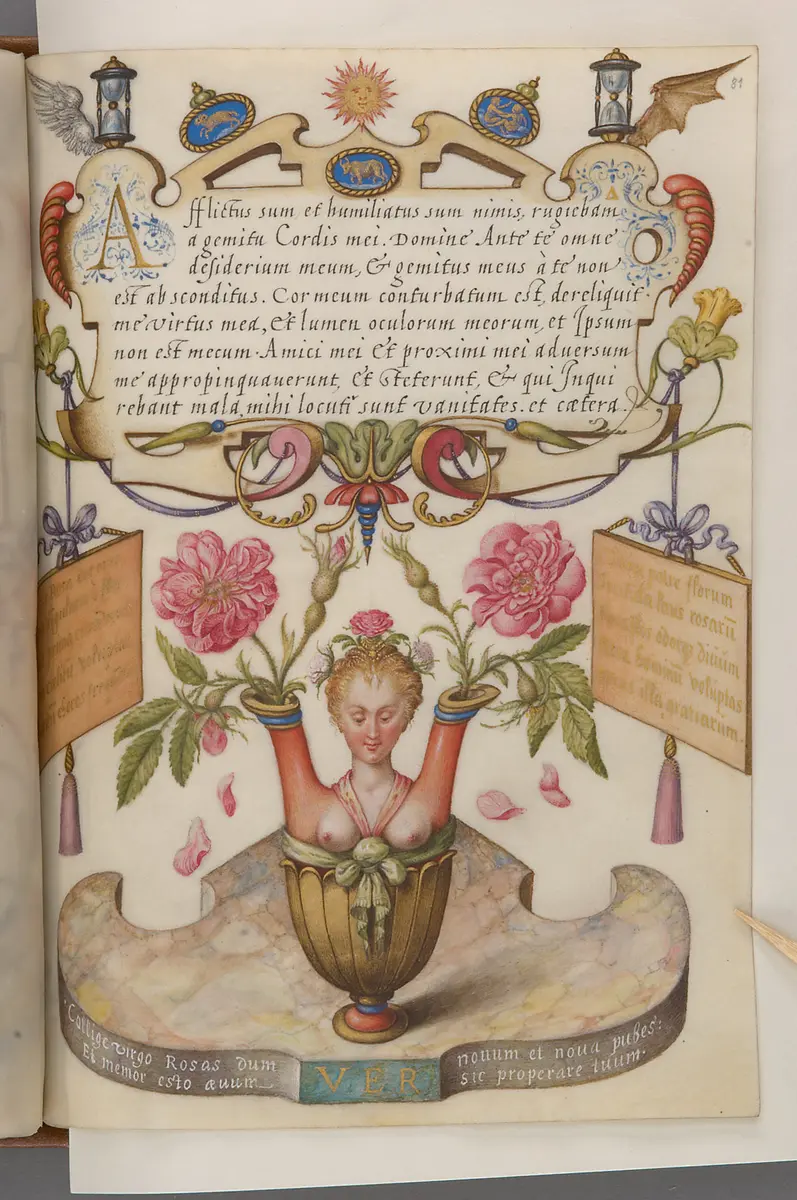 81
Afflictus sum, et humiliatus sum nimis, rugiebam
a gemitu Cordis mei. Domine Ante te omne
desiderium meum, & gemitus meus à te non
est absconditus. Cor meum conturbatum est, dereliquit
me virtus mea, et lumen oculorum meorum, et Ipsum
non est mecum. Amici mei et proximi mei adversum
me appropinquaverunt, et steterunt, & qui Inqui
rebant mala mihi locuti sunt vanitates. et cætera.
florum
laus rosarũ
odores divũm
hominũ voluptas
illa gratiarum.
Collige virgo Rosas dum
Et memor esto ævum
VER
novum et nova pubes:
sic properare tuum.